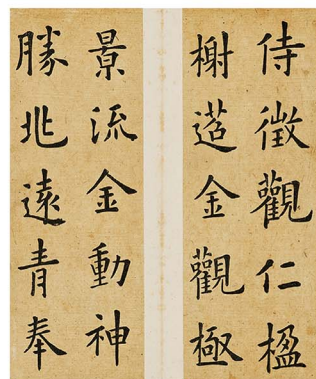 侍徵觀仁楹
榭迢金觀極
景流金動神
勝兆遠青奉